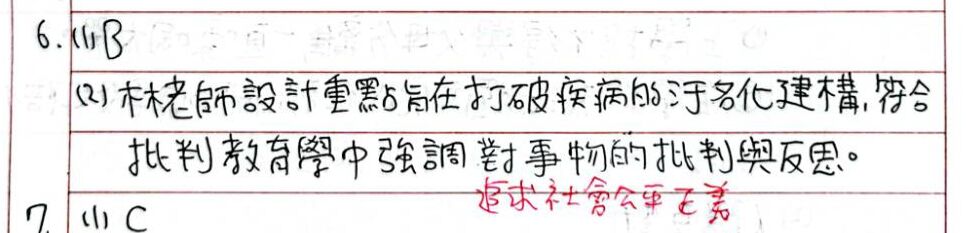 6. (1) B
(2) 林老師設計重點旨在打破疾病的汙名化建構,符合
批判教育學中強調對事物的批判與反思。
追求社會公平正義
7. (1) C